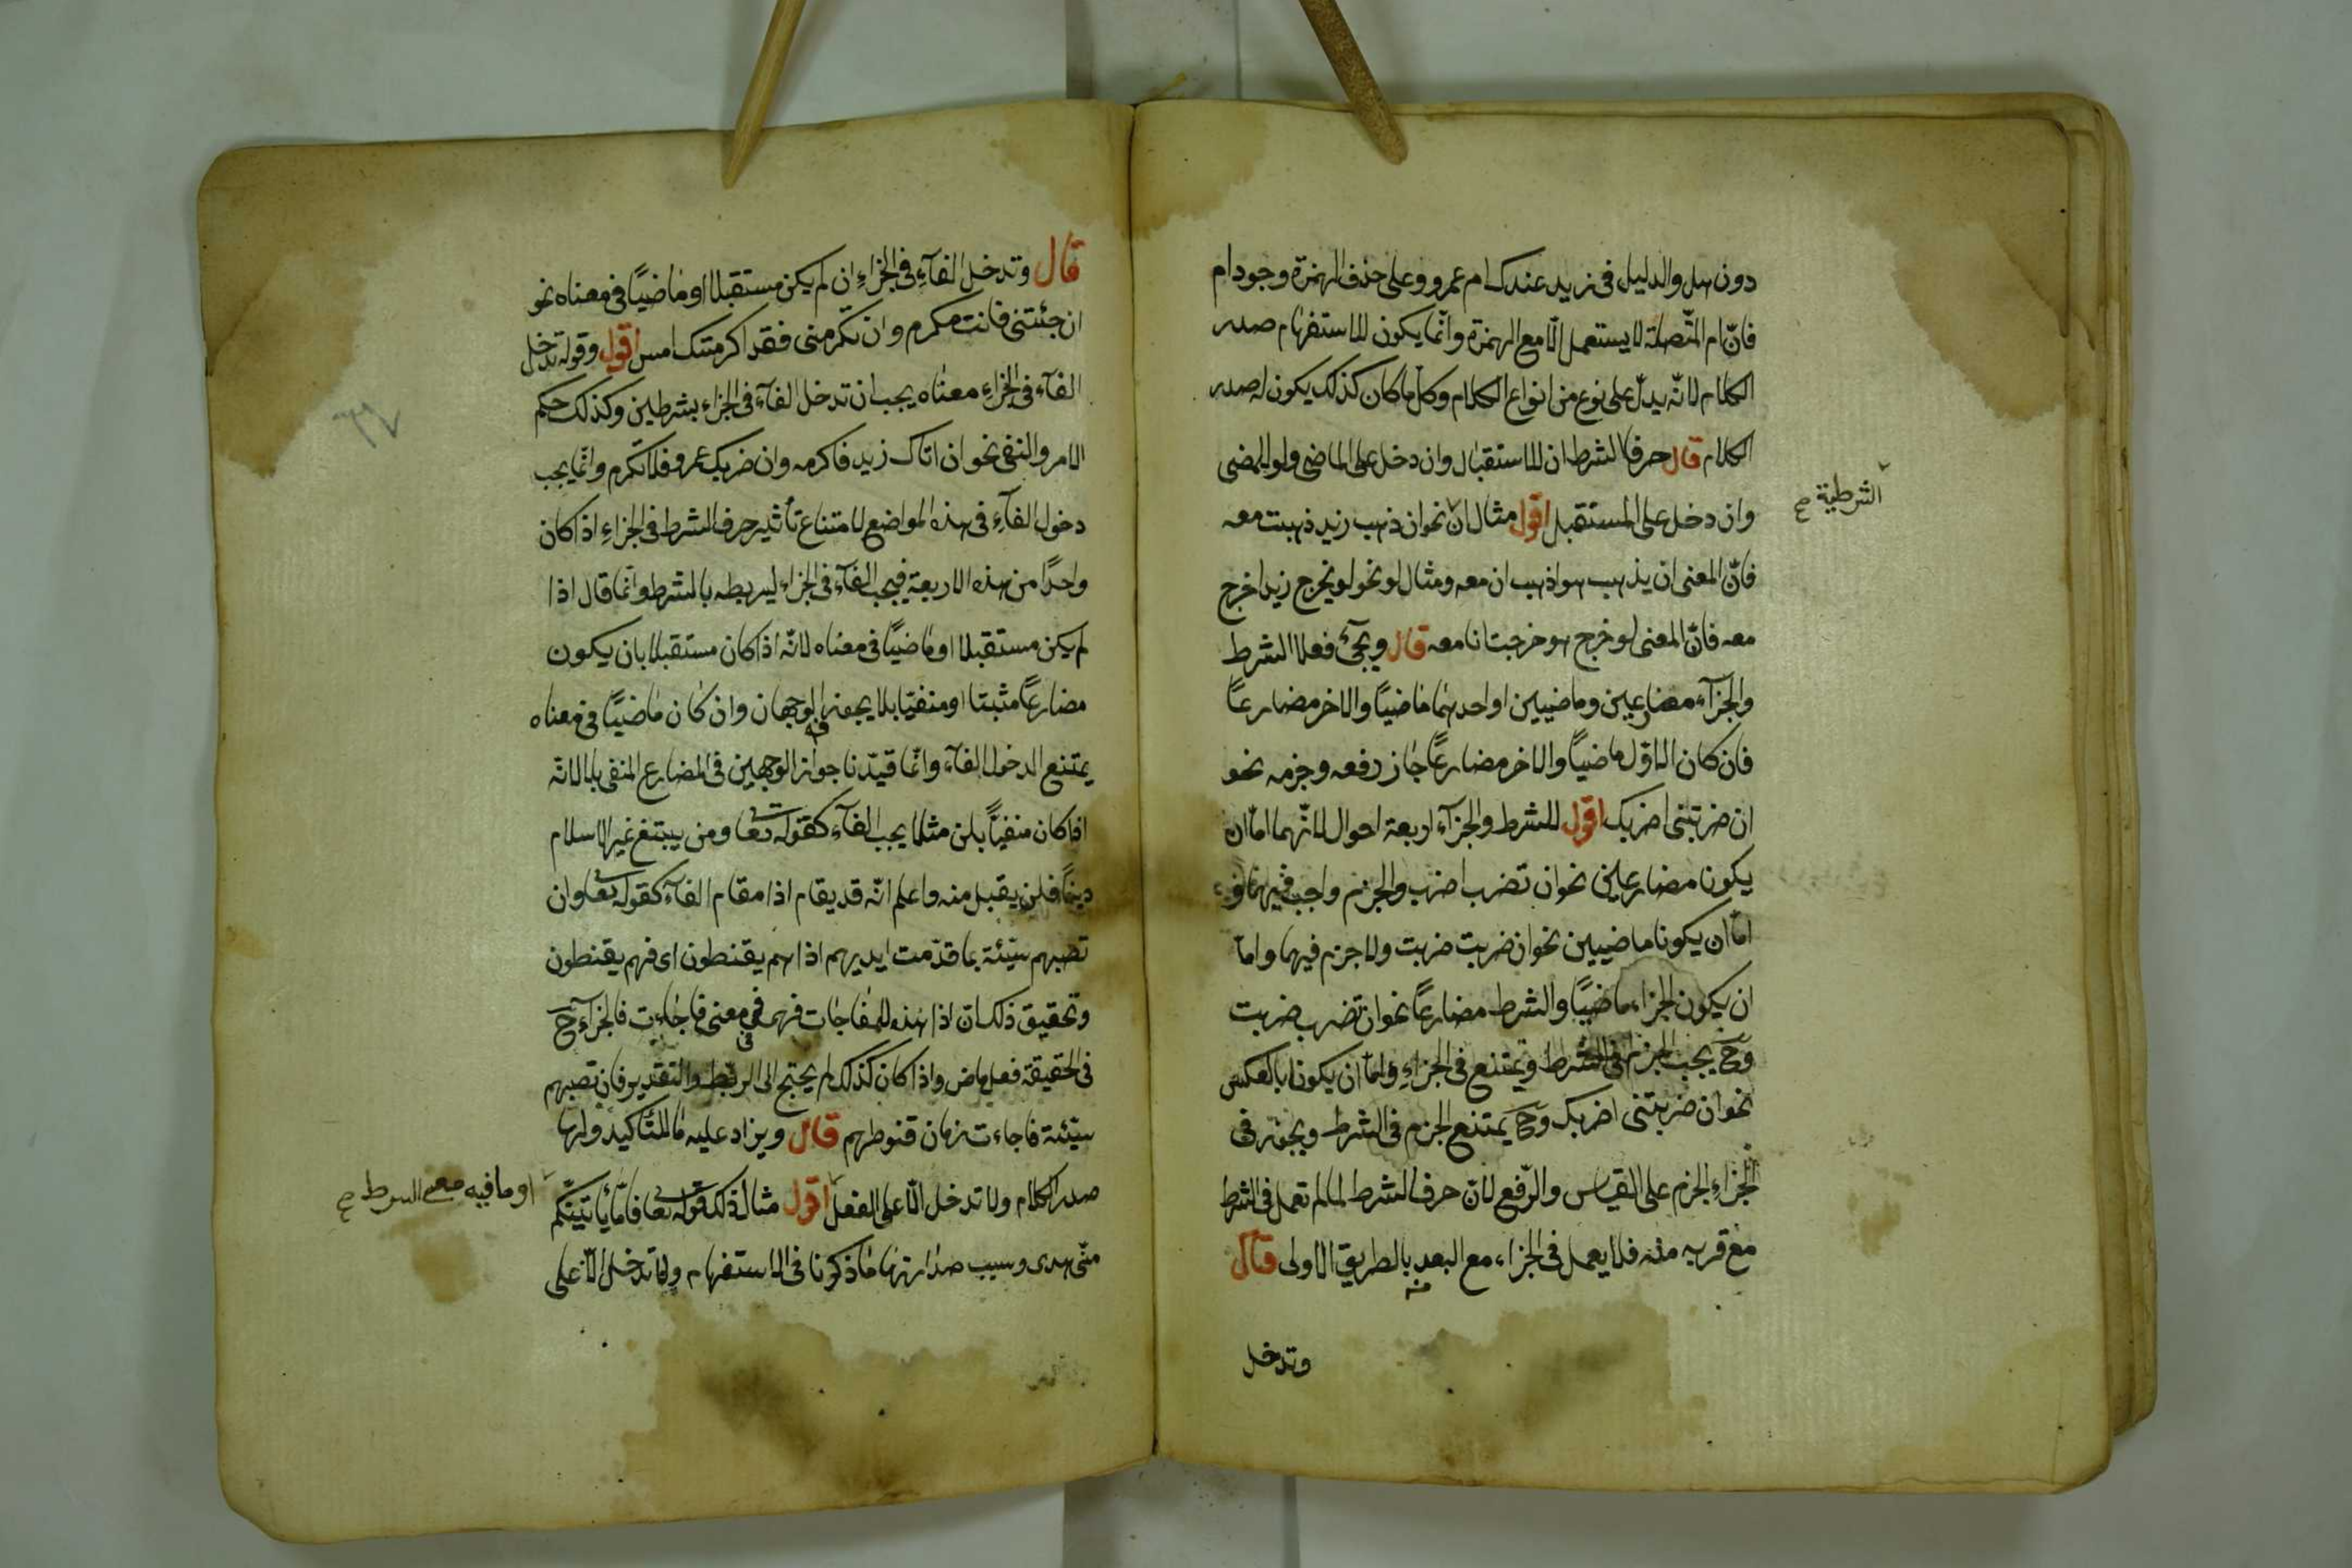 دون هل والدليل في زيد عندك ام عمرو وعلى حذف الهمزة وجود ام
فانّ ام المتّصلة لا يستعمل الّا مع الهمزة وانّما يكون للاستفهام صدر
الكلام لانّه يدلّ على نوع من انواع الكلام وكل ما كان كذلك يكون له صدر
الكلام قال حرفا الشرط ان للاستقبال وان دخل على الماضي ولو للمضي
وان دخل على المستقبل اقول مثال انْ نحو ان ذهب زيد ذهبت معه
الشرطية صح
فانّ المعنى ان يذهب هو اذهب انا معه ومثال لو نحو لو يخرج زيد اخرج
معه فانّ المعنى لو خرج هو خرجت انا معه قال ويجئ فعلا الشرط
والجزآء مضارعين وماضيين او احدهما ماضيًا والاخر مضارعًا
فان كان الاوّل ماضيًا والاخر مضارعًا جاز رفعه وجزمه نحو
ان ضربتنى اضربك اقول للشرط والجزآء اربعة احوال لانّهما امّا ان
يكونا مضارعين نحو ان تضرب اضرب والجزم واجب فيهما و
امّا ان يكونا ماضيين نحو ان ضربت ضربت ولا جزم فيهما وامّا
ان يكون الجزاء ماضيًا والشرط مضارعًا نحو ان تضرب ضربت
وح يجب الجزم في الشرط ويمتنع في الجزاء وامّا ان يكونا بالعكس
نحو ان ضربتنى اضربك وح يمتنع الجزم في الشرط ويجوز في
الجزاء الجزم على القياس والرّفع لانّ حرف الشرط لما لم تعمل في الشرط
مع قربه منه فلا يعمل في الجزاء مع البعد منه بالطريق الاولى قال
وتدخل
قال وتدخل الفآء في الجزاء ان لم يكن مستقبلا او ماضيًا في معناه نحو
ان جئتنى فانت مكرم وان تكرمنى فقد اكرمتك امس اقول وقوله تدخل
الفآء في الجزاء معناه يجب ان تدخل الفآء في الجزاء بشرطين وكذلك حكم
الامر والنفي نحو ان اتاك زيد فاكرمه وان ضربك عمرو فلا تكرم وانّما يجب
دخول الفآء في هذه المواضع لامتناع تأثير حرف الشرط في الجزاء اذ اكان
واحدًا من هذه الاربعة فيجب الفآء في الجزاء ليربطه بالشرط وانّما قال اذا
لم يكن مستقبلا او ماضيًا في معناه لانّه اذا كان مستقبلا بان يكون
مضارعًا مثبتا او منفيّا بلا يجوز فيه الوجهان وان كان ماضيًا في معناه
يمتنع الدخول الفآء وانّما قيّدنا جواز الوجهين في المضارع المنفي بلا لانّه
اذا كان منفيًا بلن مثلا يجب الفآء كقوله تعا ومن يبتغ غير الاسلام
دينًا فلن يقبل منه واعلم انّه قد يقام اذا مقام الفآء كقوله تعا وان
تصبهم سيّئة بما قدّمت ايديهم اذا هم يقنطون اى فهم يقنطون
وتحقيق ذلك انّ اذا هذه للمفاجات فهي في معنى فاجاءت فالجزآء ح
في الحقيقة فعل ماض واذا كان كذلك لم يحتج الى الربط والتقدير فان تصبهم
سيّئة فاجاءت زمان قنوطهم قال ويزاد عليه ما للتاكيد ولها
صدر الكلام ولا تدخل الّا على الفعل اقول مثال ذلك قوله تعا فامّا يأتينّكم
او ما فيه معنى الشرط صح
منّى هدى وسبب صدارتها ما ذكرنا في الاستفهام ولا تدخل الّا على